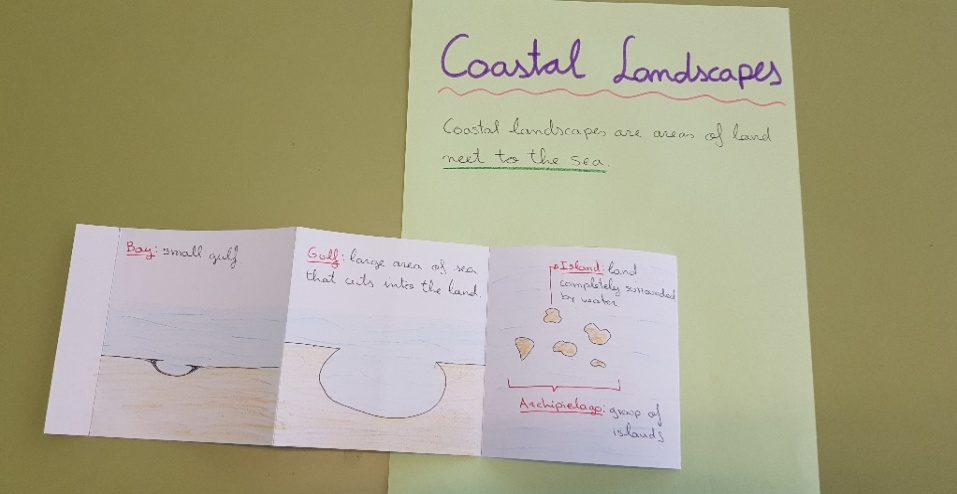 Coastal Landscapes
Coastal landscapes are areas of land
next to the sea.
Bay: small gulf.
Gulf: large area of sea
that cuts into the land.
Island: land
completely surrounded
by water
Archipielago: group of
islands